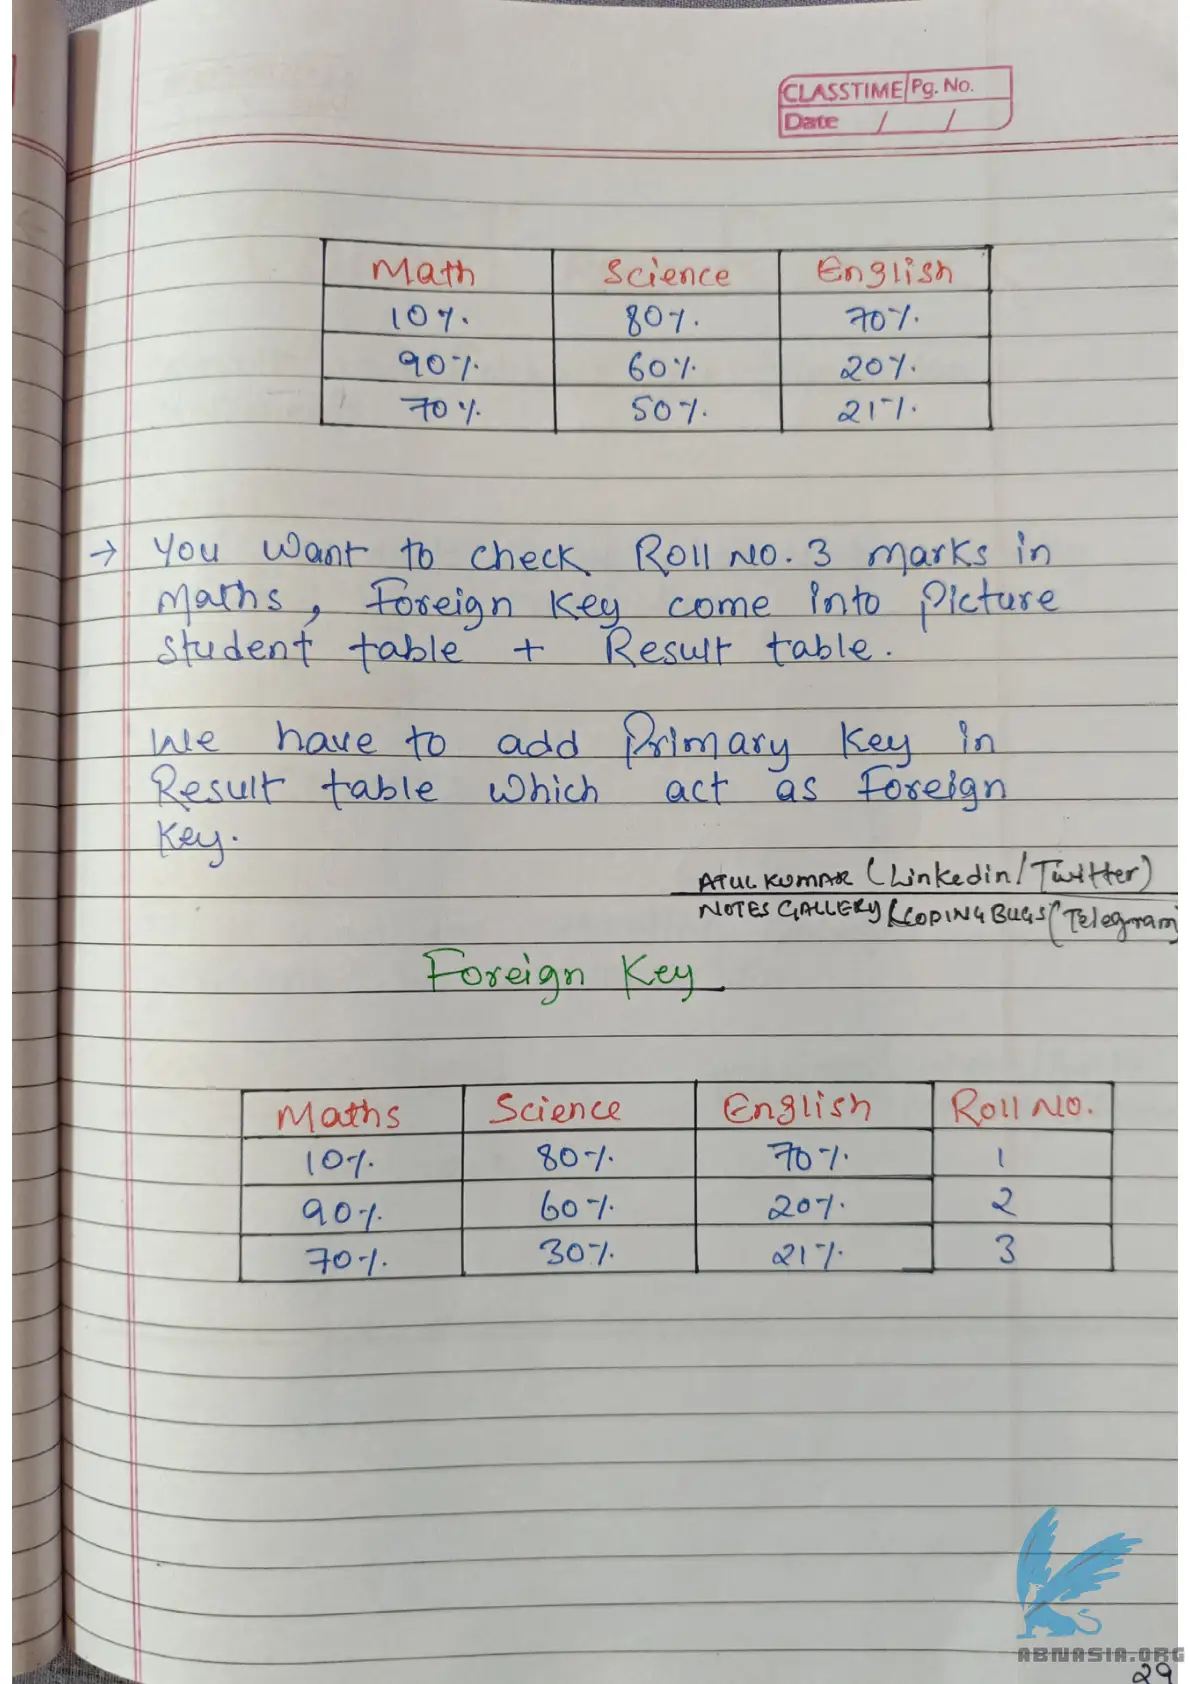 CLASSTIME Pg. No.
Date / /
Math Science English
10% 80% 70%
90% 60% 20%
70% 50% 21%
→ You want to check Roll No. 3 marks in
Maths, Foreign Key come into Picture
student table + Result table.
We have to add Primary Key in
Result table which act as Foreign
Key.
ATUL KUMAR (Linkedin/Twitter)
NOTES GALLERY & CODING BUGS (Telegram)
Foreign Key
Maths Science English Roll No.
10% 80% 70% 1
90% 60% 20% 2
70% 30% 21% 3
ABNASIA.ORG
29